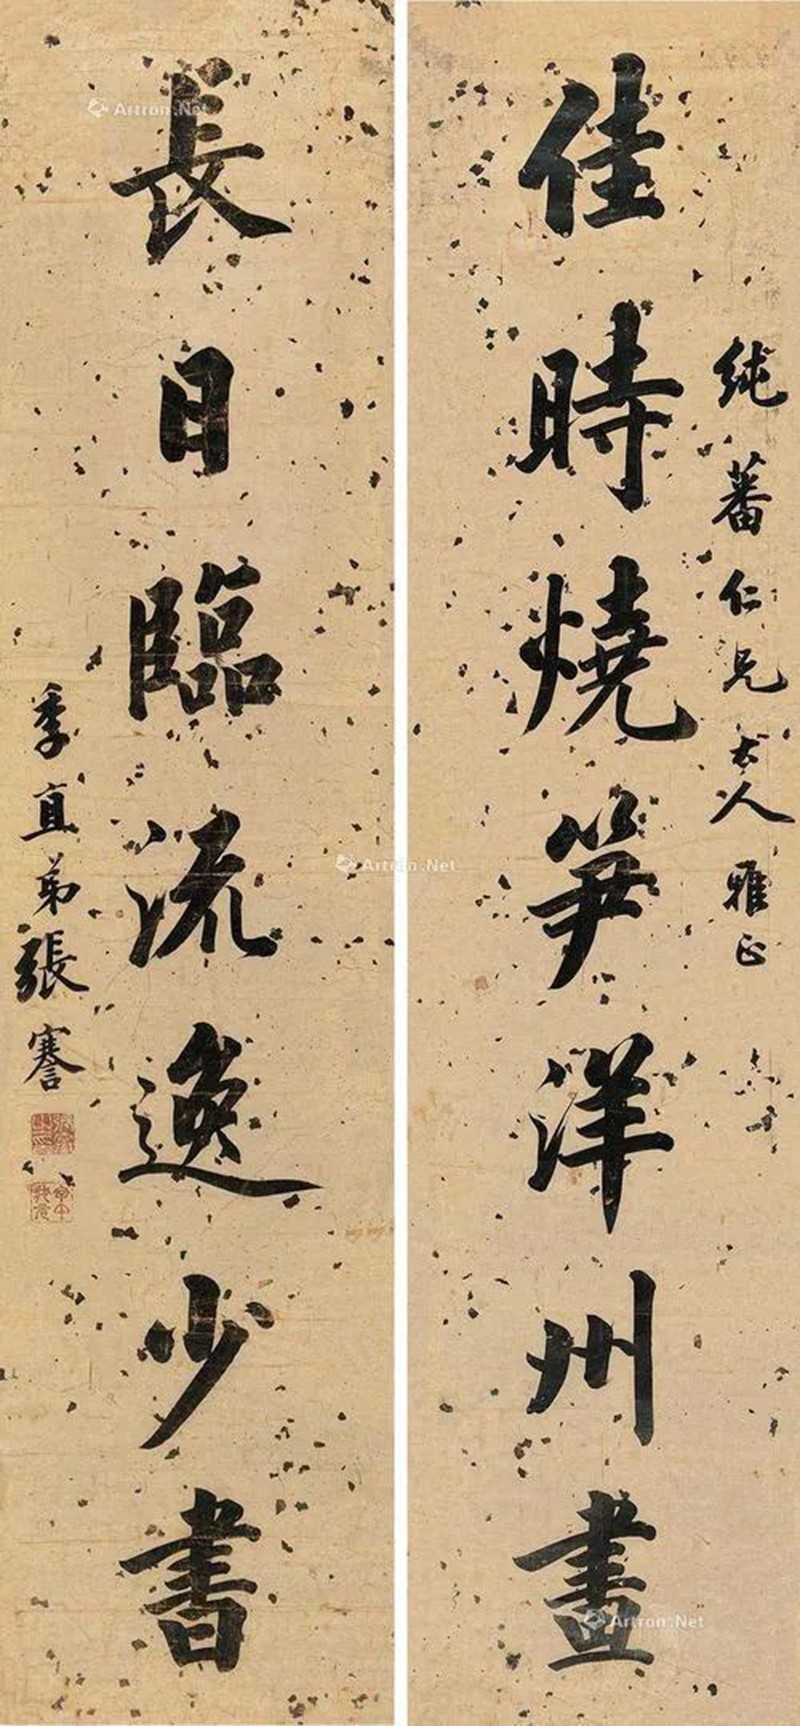 純蕃仁兄大人雅正
佳時燒笋洋州畫
長日臨流逸少書
季直弟張謇
Artron.Net
Artron.Net
Artron.Net